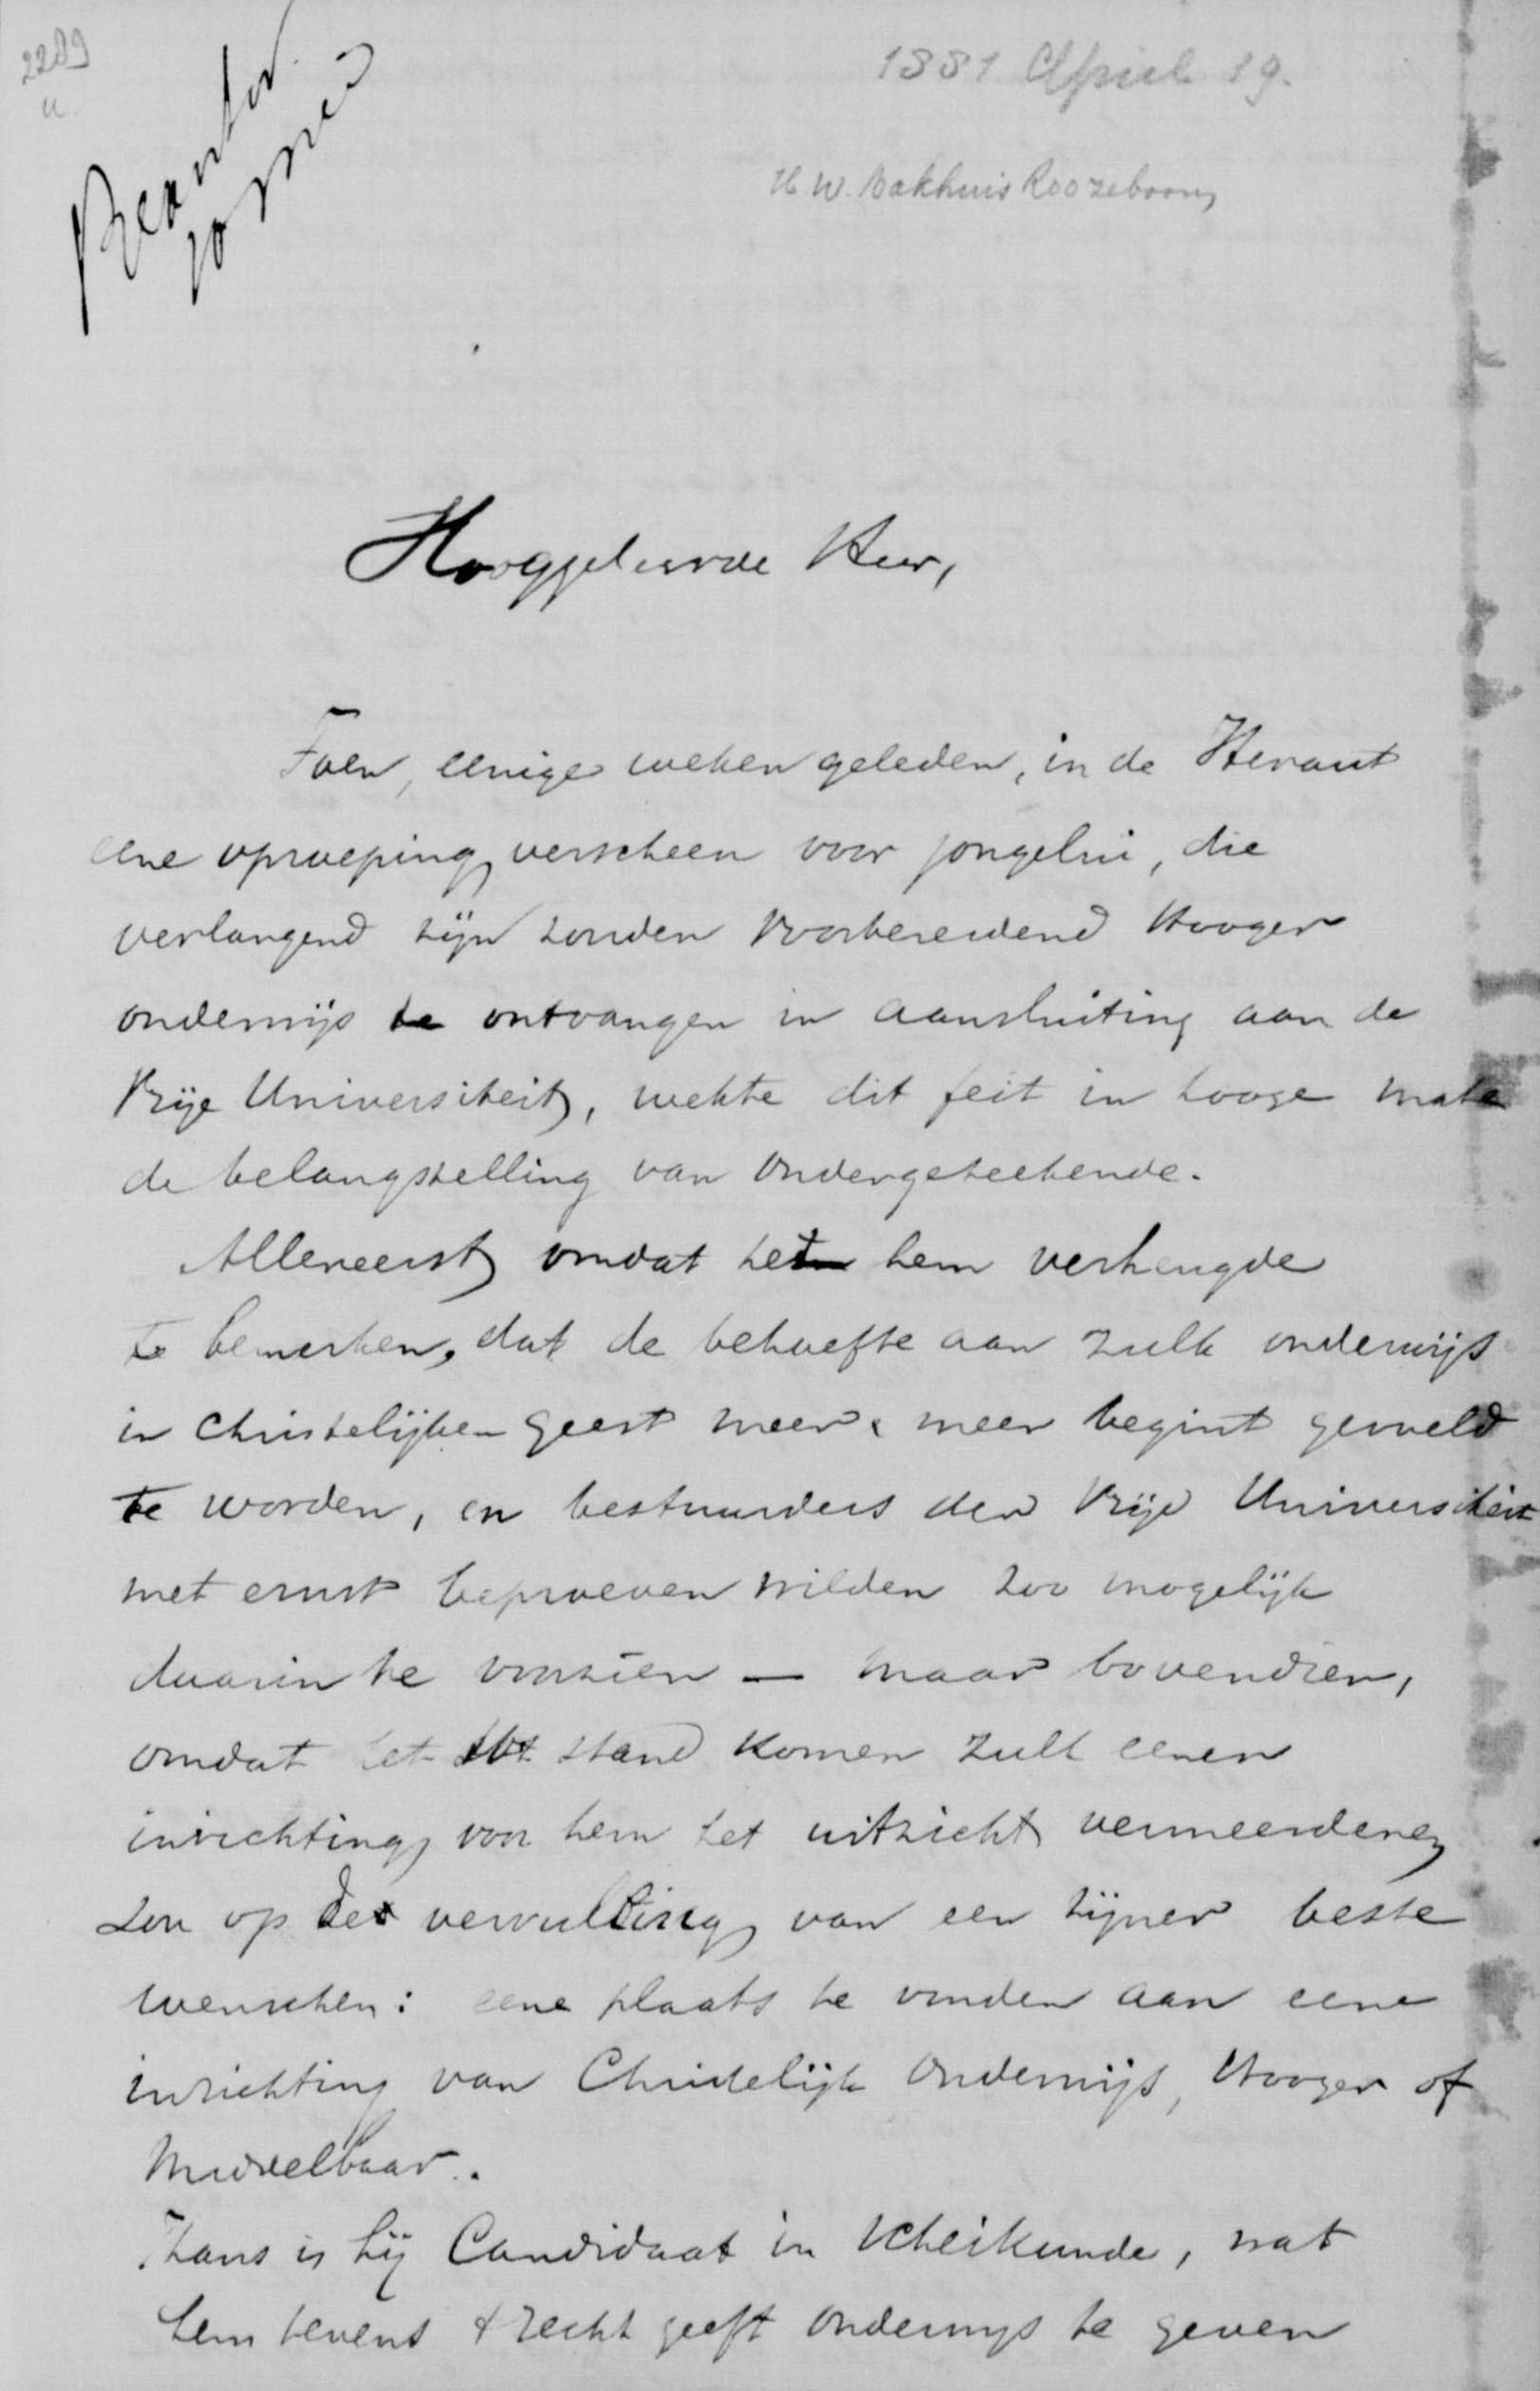 2289
u.
1881 April 19.
H. W. Bakhuis Roozeboom
Beantw.
Hooggeleerde Heer,
Toen, eenige weken geleden, in de Heraut
eene oproeping verscheen voor jongelui, die
verlangend zijn zouden Voorbereidend Hooger
onderwijs te ontvangen in aansluiting aan de
Vrije Universiteit, wekte dit feit in hooge mate
de belangstelling van ondergeteekende.
Allereerst omdat het hem verheugde
te bemerken, dat de behoefte aan zulk onderwijs
in Christelijken geest meer & meer begint gevoeld
te worden, en bestuurders der Vrije Universiteit
met ernst beproeven wilden zoo mogelijk
daarin te voorzien — maar bovendien,
omdat het tot stand komen zulk eener
inrichting voor hem het uitzicht vermeerderen
zou op de vervulling van een zijner beste
wenschen: eene plaats te vinden aan eene
inrichting van Christelijk Onderwijs, Hooger of
Middelbaar.
Thans is hij Candidaat in Scheikunde, wat
hem tevens 't recht geeft onderwijs te geven